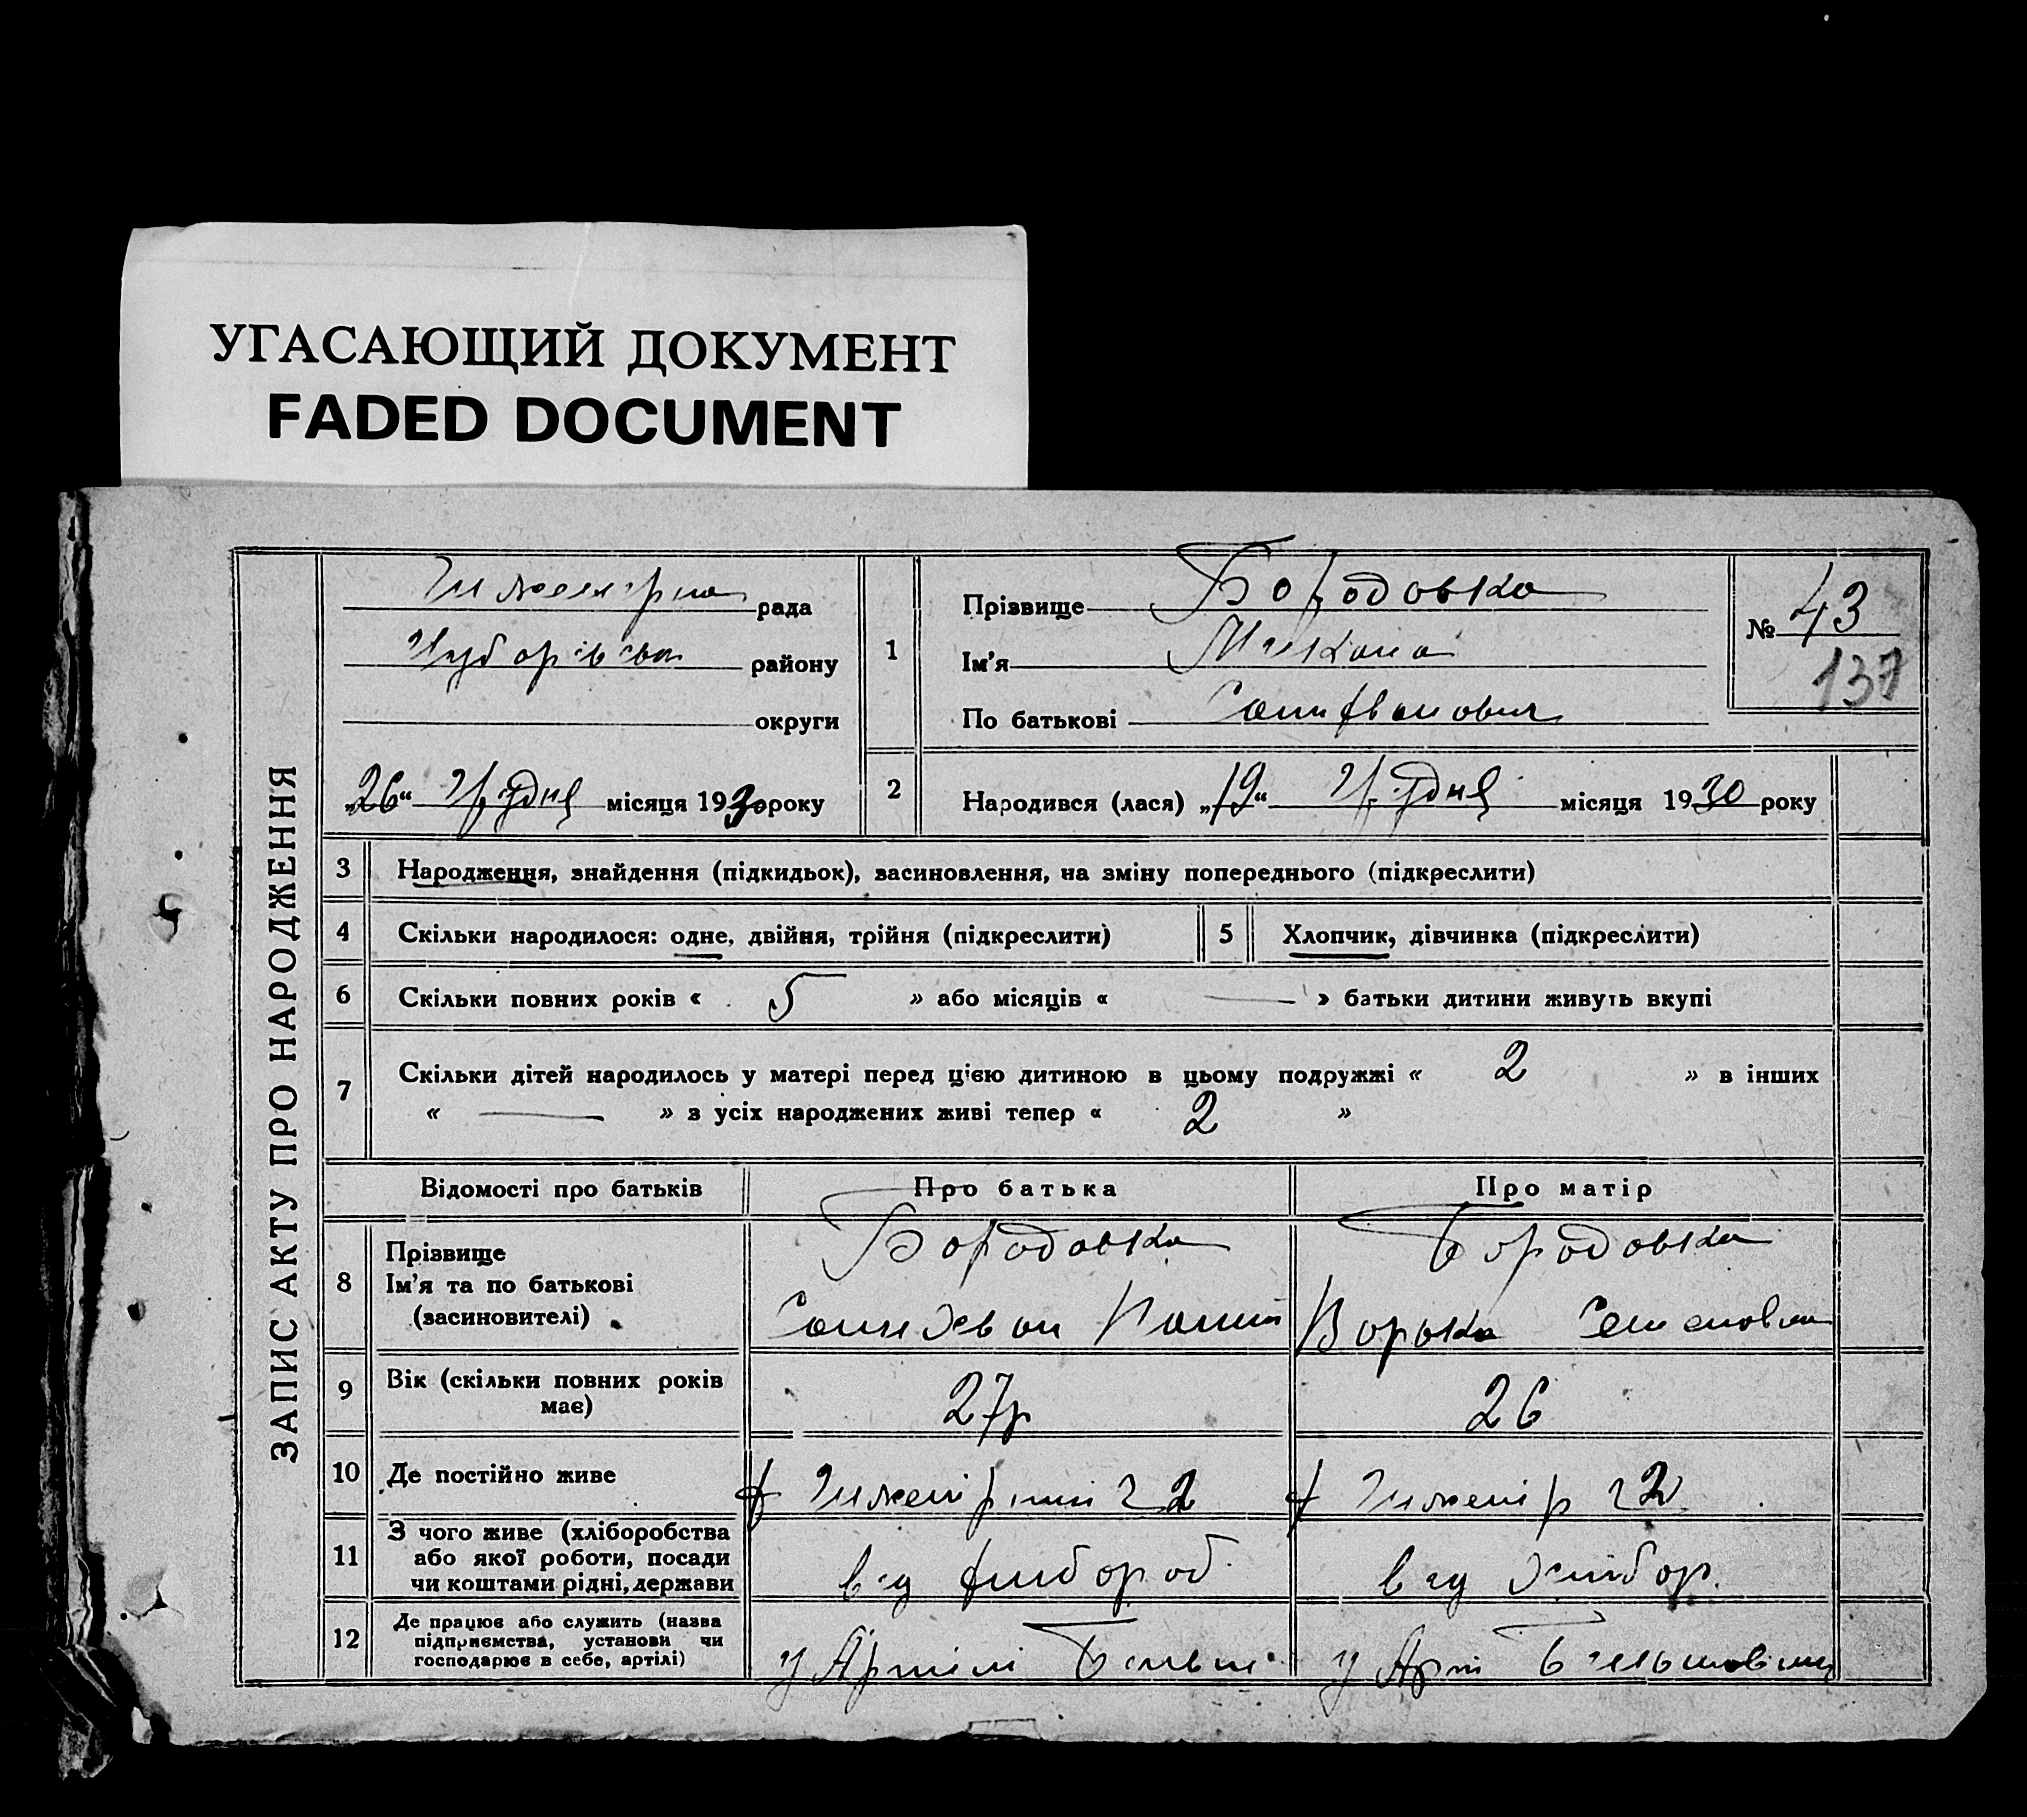 УГАСАЮЩИЙ ДОКУМЕНТ
FADED DOCUMENT
ЗАПИС АКТУ ПРО НАРОДЖЕННЯ
рада
району
округи
„26“ Грудня місяця 1930 року
1
Прізвище Бородовка
Ім'я
По батькові
№ 43
137
2
Народився (лася) „19“ Грудня місяця 1930 року
3 Народження, знайдення (підкидьок), засиновлення, на зміну попереднього (підкреслити)
4 Скільки народилося: одне, двійня, трійня (підкреслити)
5 Хлопчик, дівчинка (підкреслити)
6 Скільки повних років « 5 » або місяців « — » батьки дитини живуть вкупі
7 Скільки дітей народилось у матері перед цією дитиною в цьому подружжі « 2 » в інших
« — » з усіх народжених живі тепер « 2 »
Відомості про батьків Про батька Про матір
8 Прізвище
Ім'я та по батькові
(засиновителі)
Бородовка
Бородовка
9 Вік (скільки повних років
має)
27р
26
10 Де постійно живе
11 З чого живе (хліборобства
або якої роботи, посади
чи коштами рідні, держави
12 Де працює або служить (назва
підприємства, установи чи
господарює в себе, артілі)
у Артілі
у Арті